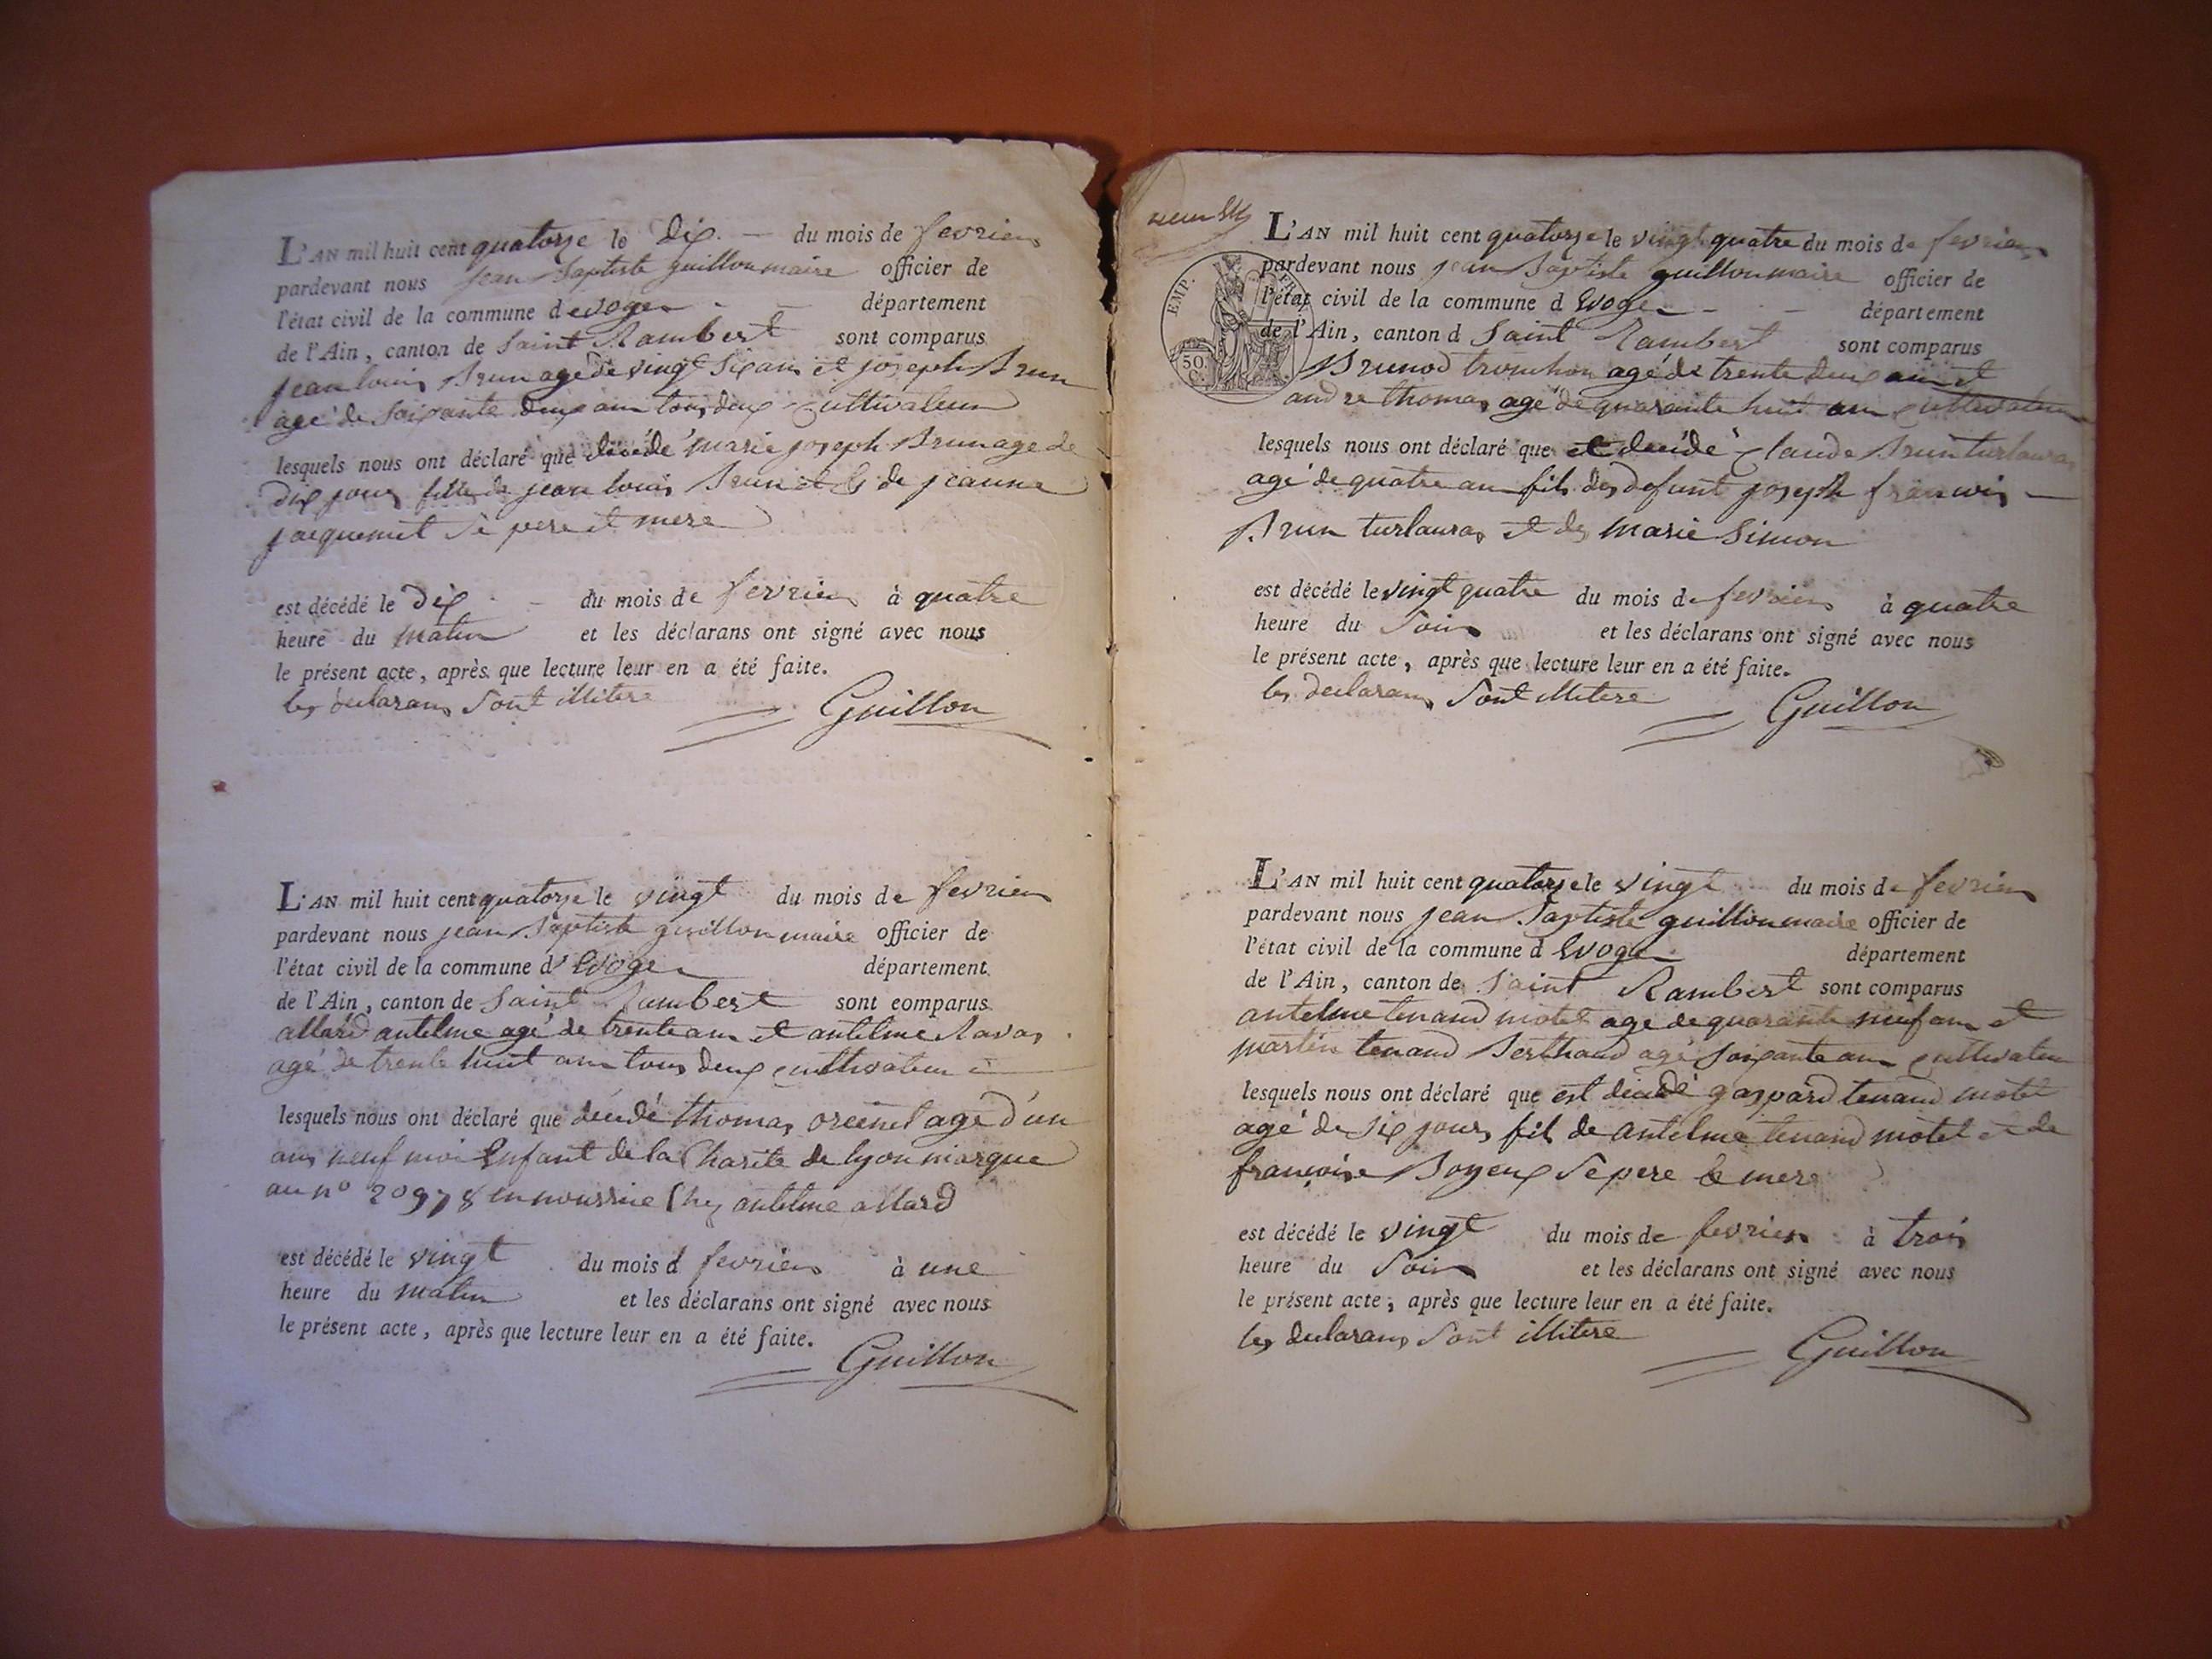 L'AN mil huit cent quatorze le dix du mois de fevrier
pardevant nous jean Baptiste guillon maire officier de
l'état civil de la commune d evoges département
de l'Ain, canton de Saint Rambert sont comparus
jean louis Brun agé de vingt six ans et joseph Brun
agé de soixante deux ans tous deux cultivateurs
lesquels nous ont déclaré que décédé marie joseph Brun age de
dix jours fille de jean louis Brun et de jeanne
jacquemet se pere et mere
est décédé le dix du mois de fevrier à quatre
heure du matin et les déclarans ont signé avec nous
le présent acte, après que lecture leur en a été faite.
les declarans sont illitere Guillon
L'AN mil huit cent quatorze le vingt du mois de fevrier
pardevant nous jean Baptiste guillon maire officier de
l'état civil de la commune d' Evoges département
de l'Ain, canton de Saint Rambert sont comparus
allard antelme agé de trente ans et antelme Ravas
agé de trente huit ans tous deux cultivateur
lesquels nous ont déclaré que décédé thomas agé d'un
ans neuf moi Enfant de la Charite de lyon marque
au n° 20978 en nourrice Chez antelme allard
est décédé le vingt du mois d fevrier à une
heure du matin et les déclarans ont signé avec nous
le présent acte, après que lecture leur en a été faite.
Guillon
L'AN mil huit cent quatorze le vingt quatre du mois de fevrier
pardevant nous jean Baptiste guillon maire officier de
l'état civil de la commune d Evoges département
de l'Ain, canton d Saint Rambert sont comparus
EMP. FR.
50. C.
Brunod tronchon agé de trente deux ans et
andre thomas agé de quarante huit ans cultivateur
lesquels nous ont déclaré que et décédé claude Brun turlauras
agé de quatre ans fils des defunt joseph francois
Brun turlauras et de marie Simon
est décédé le vingt quatre du mois de fevrier à quatre
heure du Soir et les déclarans ont signé avec nous
le présent acte, après que lecture leur en a été faite.
les declarans sont illitere Guillon
L'AN mil huit cent quatorze le vingt du mois de fevrier
pardevant nous jean Baptiste guillon maire officier de
l'état civil de la commune d Evoges département
de l'Ain, canton de Saint Rambert sont comparus
antelme tenand motet age de quarante neuf ans et
martin tenand Berthaud agé soixante ans cultivateur
lesquels nous ont déclaré que est décédé gaspard tenand motet
agé de six jours fils de antelme tenand motet et de
françoise Boyeux se pere & mere
est décédé le vingt du mois de fevrier à trois
heure du Soir et les déclarans ont signé avec nous
le présent acte, après que lecture leur en a été faite.
les declarans sont illitere Guillon